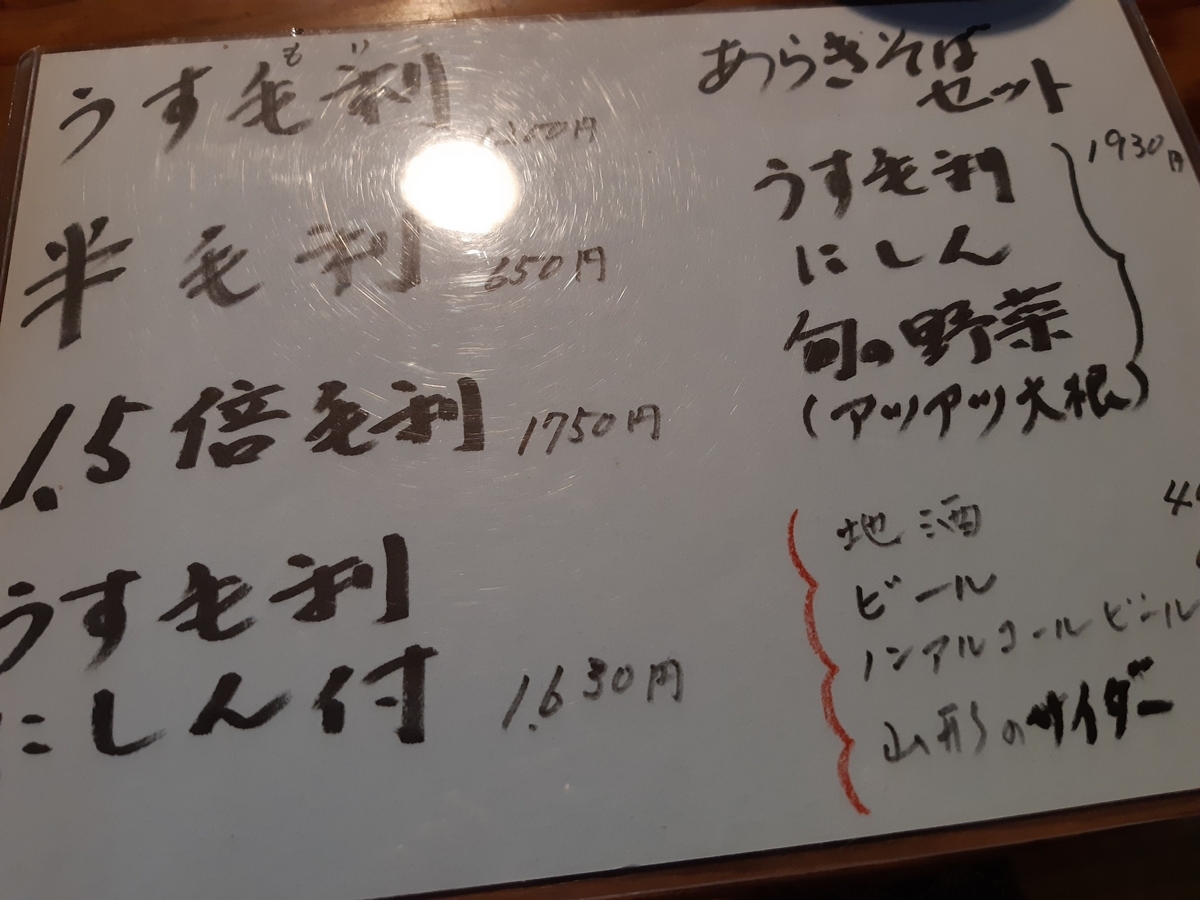 もり
うす毛利
半毛利 650円
1.5倍毛利 1750円
うす毛利
にしん付 1.630円
あらきそば
セット
1930円
うす毛利
にしん
旬の野菜
(アツアツ大根)
地酒
ビール
ノンアルコールビール
山形のサイダー